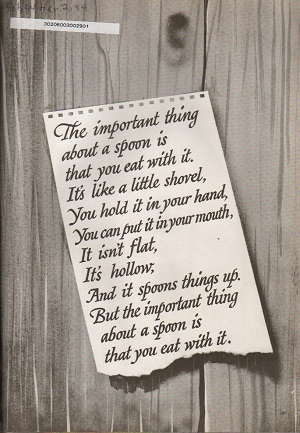 30206003002901
The important thing
about a spoon is
that you eat with it.
It's like a little shovel,
You hold it in your hand,
You can put it in your mouth,
It isn't flat,
It's hollow,
And it spoons things up.
But the important thing
about a spoon is
that you eat with it.